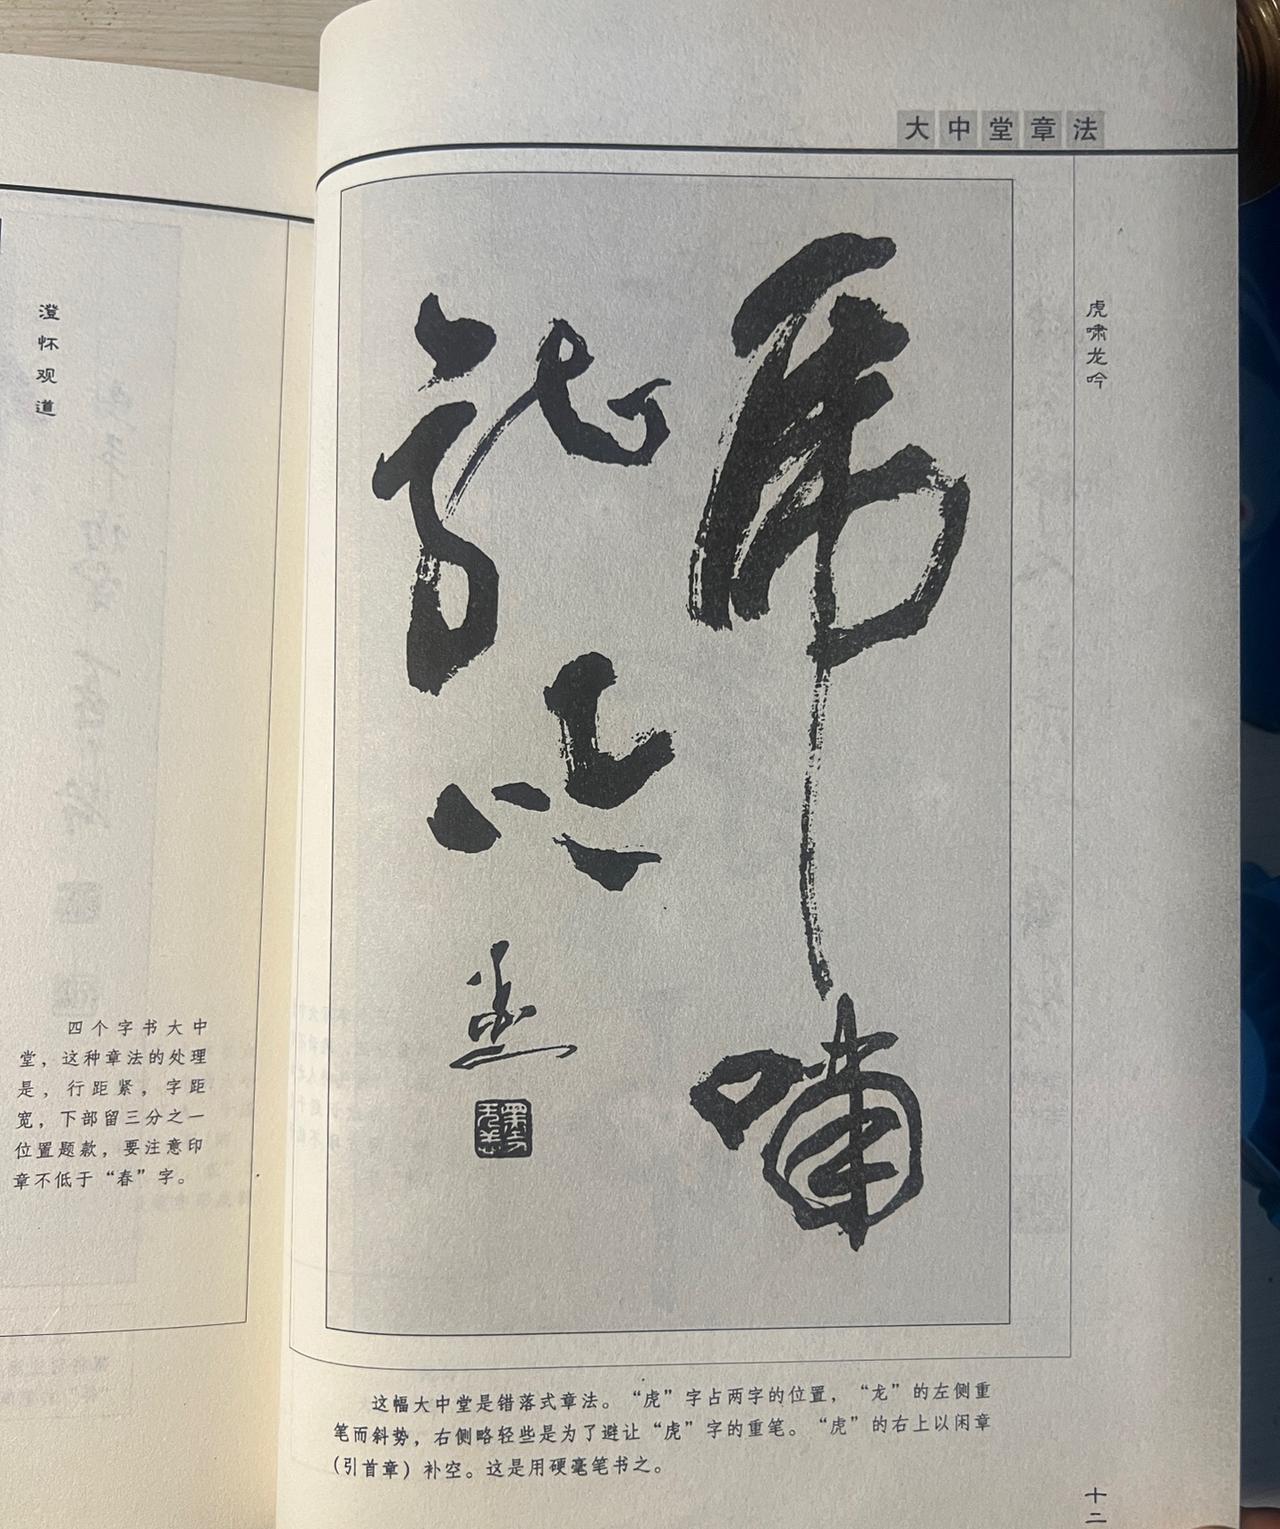 澄怀观道
四个字书大中
堂，这种章法的处理
是，行距紧，字距
宽，下部留三分之一
位置题款，要注意印
章不低于“春”字。
大中堂章法
虎啸龙吟
虎啸
龍吟
这幅大中堂是错落式章法。“虎”字占两字的位置，“龙”的左侧重
笔而斜势，右侧略轻些是为了避让“虎”字的重笔。“虎”的右上以闲章
（引首章）补空。这是用硬毫笔书之。
十二